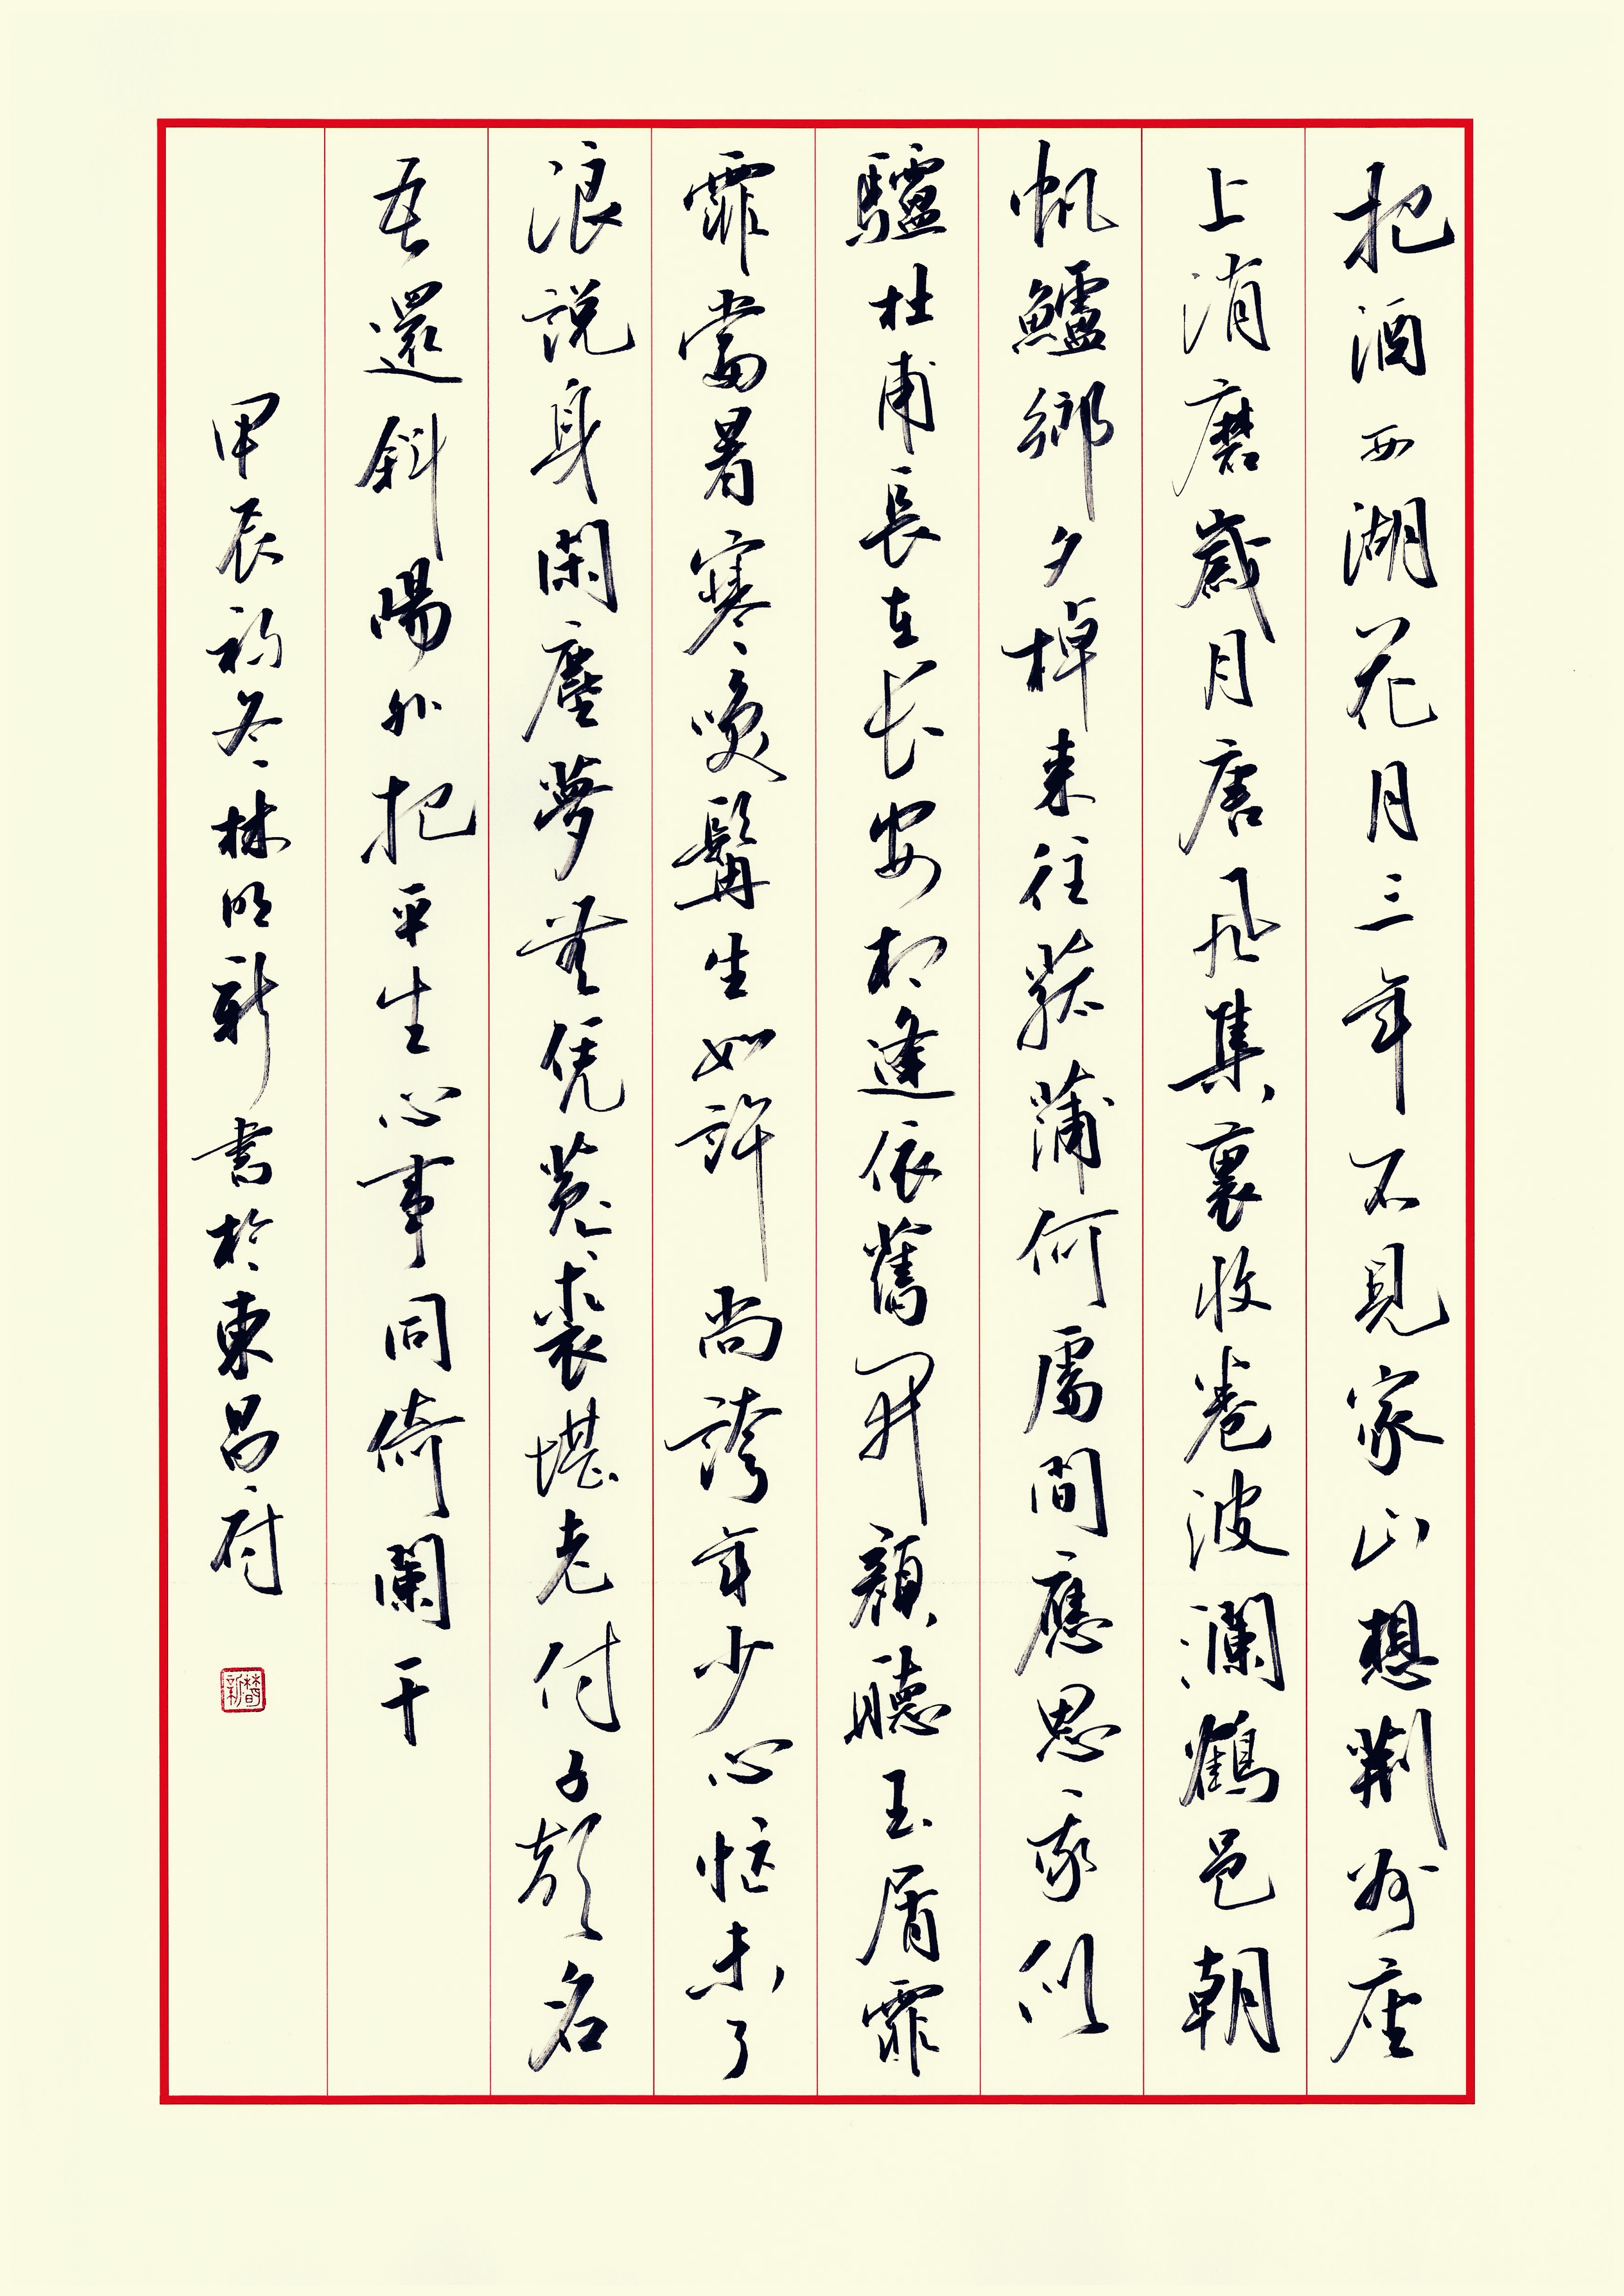 把酒西湖花月三年不見家山想荆州座
上消磨歲月唐風集裏收卷波瀾鶴邑朝
帆鱸鄉夕棹來往菰蒲何處間應思我似
驢杜甫長在长安相逢依舊開顏聽玉屑霏
霏當暑寒喚髯生如許尚誇年少心忙未了
浪說身閑塵夢無凭菟裘堪老付子名
吾還斜陽外把平生心事同倚闌干
甲辰初冬林明新書於東昌府